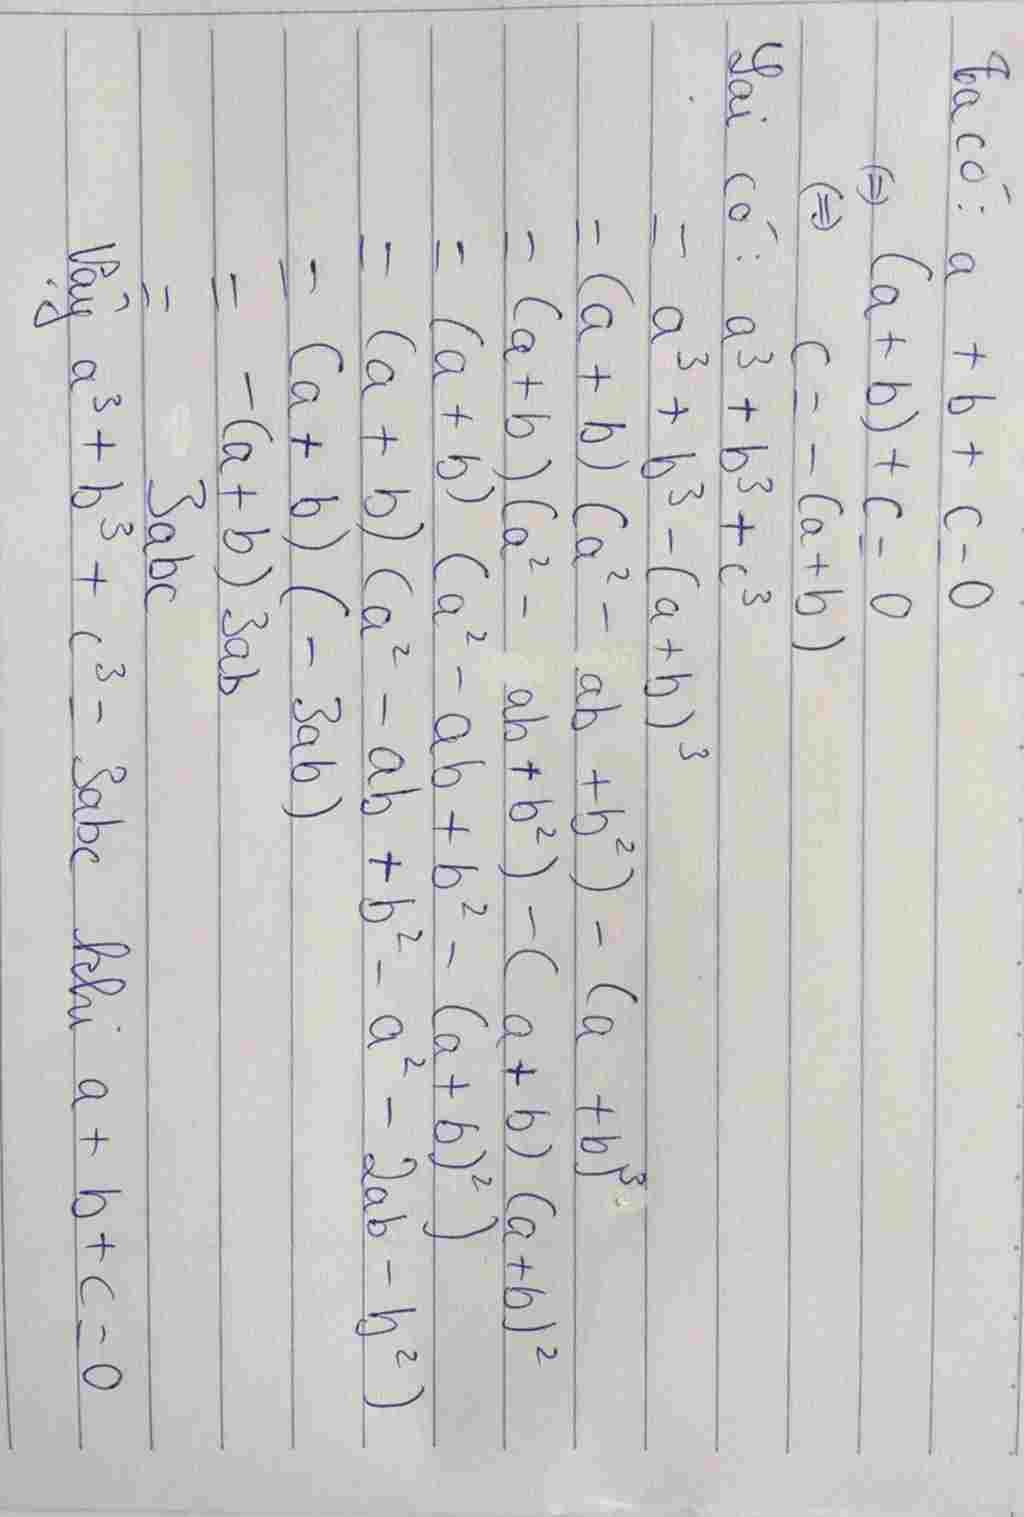 Ta có: a + b + c = 0
(=) (a + b) + c = 0
(=) c = - (a+b)
Lại có: a³ + b³ + c³
= a³ + b³ - (a+b)³
= (a + b) (a² - ab + b²) - (a + b)³
= (a + b) (a² - ab + b²) - (a + b) (a+b)²
= (a + b) (a² - ab + b² - (a + b)²)
= (a + b) (a² - ab + b² - a² - 2ab - b²)
= (a + b) (- 3ab)
= -(a + b) 3ab
= 3abc
Vậy a³ + b³ + c³ = 3abc khi a + b + c = 0